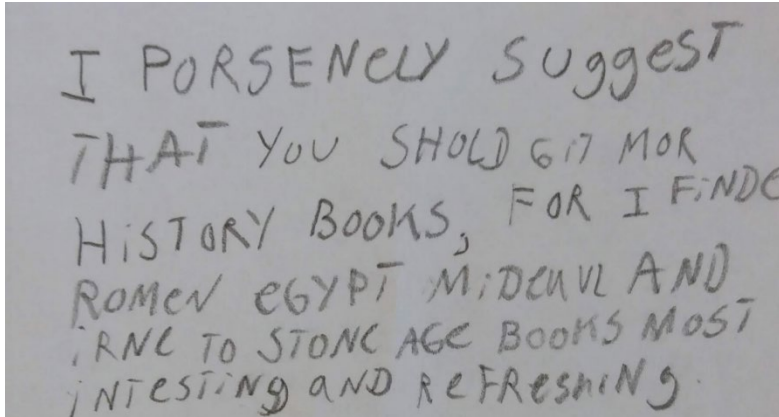 I PORSENELY SUggeST
THAT YOU SHOLD GiT MOR
HiSTORY BOOKS, FOR I FiNDE
ROMEN eGYPT MiDEUVL AND
iRNE TO STONE AGE BOOKS MOST
iNTESTiNg aND ReFReshiNg.